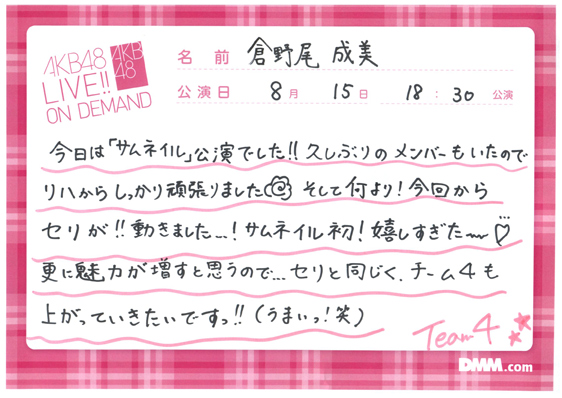 AKB48
LIVE!!
ON DEMAND
AKB
48
名前 倉野尾 成美
公演日 8月 15日 18:30 公演
今日は「サムネイル」公演でした!! 久しぶりのメンバーもいたので
リハからしっかり頑張りました そして何より!今回から
セリが!!動きました…!サムネイル初!嬉しすぎた〜♡
更に魅力が増すと思うので…セリと同じく、チーム4も
上がっていきたいですっ!!(うまいっ!笑)
Team4
DMM.com